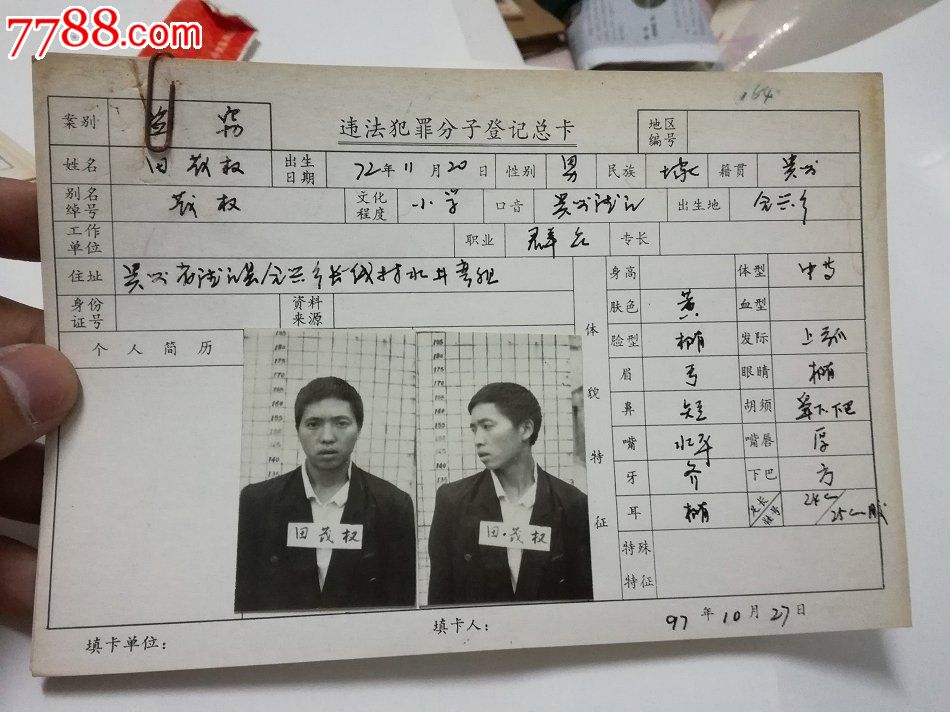 7788.com
164
违法犯罪分子登记总卡
案别 盗窃 地区编号
姓名 田茂权 出生日期 72年11月20日 性别 男 民族 籍贯 贵州
别名绰号 茂权 文化程度 小学 口音 贵州 出生地
工作单位 职业 群众 专长
住址 贵州省 县 乡 村水井 组
身份证号 资料来源
个人简历
体貌特征
身高 体型 中等
肤色 黄 血型
脸型 椭 发际 上弧
眉 弓 眼睛 椭
鼻 短 胡须 鼻下.下巴
嘴 水平 嘴唇 厚
牙 齐 下巴 方
耳 椭 足长 鞋号 24cm/25cm
特殊特征
田茂权
田.茂权
97年10月27日
填卡单位: 填卡人: